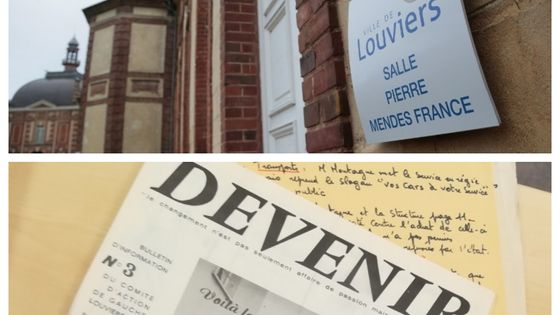 VILLE DE
Louviers
SALLE
PIERRE
MENDES FRANCE
Transports: M Montagne met le service en régie
reprend le slogan "vos cars à votre service"
public
et la structure page 11
contre l'achat de celle-ci
n'a pas permis
par l'état.
que
DEVENIR
le changement n'est pas seulement affaire de passion mais
BULLETIN
D'INFORMATION
N° 3
DU COMITÉ
D'ACTION
DE GAUCHE
LOUVIERS
Voilà